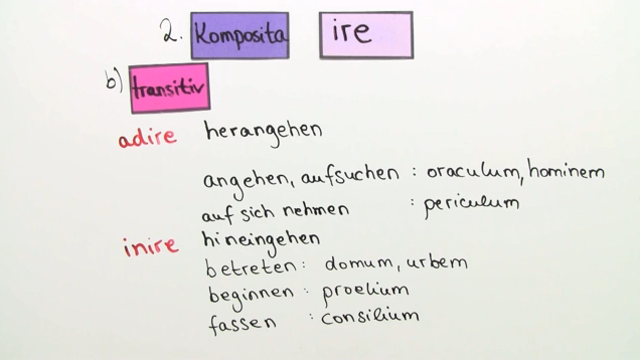 2. Komposita ire
b) transitiv
adire herangehen
angehen, aufsuchen : oraculum, hominem
auf sich nehmen : periculum
inire hineingehen
betreten: domum, urbem
beginnen : proelium
fassen : consilium